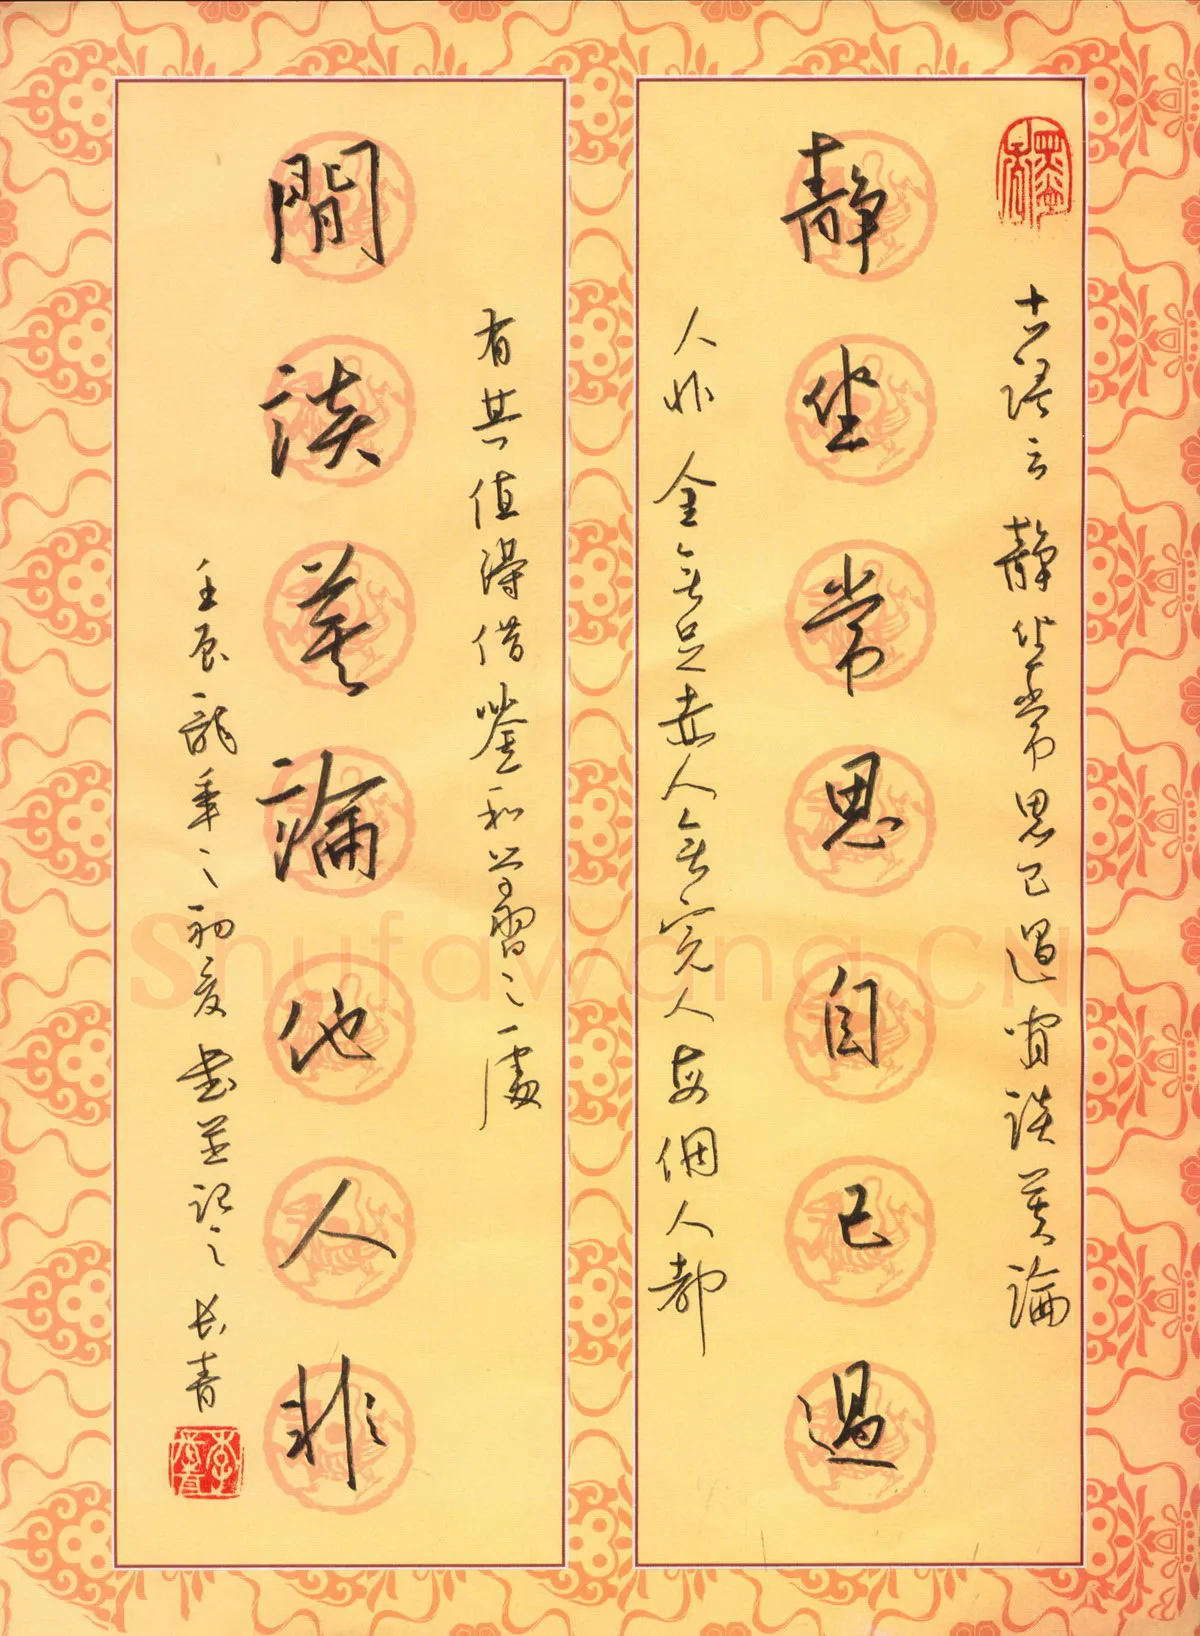 古语云静坐常思己过闲谈莫論
静坐常思自己過
人非金無足赤人無完人每個人都
有其值得借鉴和学習之處
閒談莫論他人非
壬辰龍年之初夏书並记之长青
Shufawang.CN